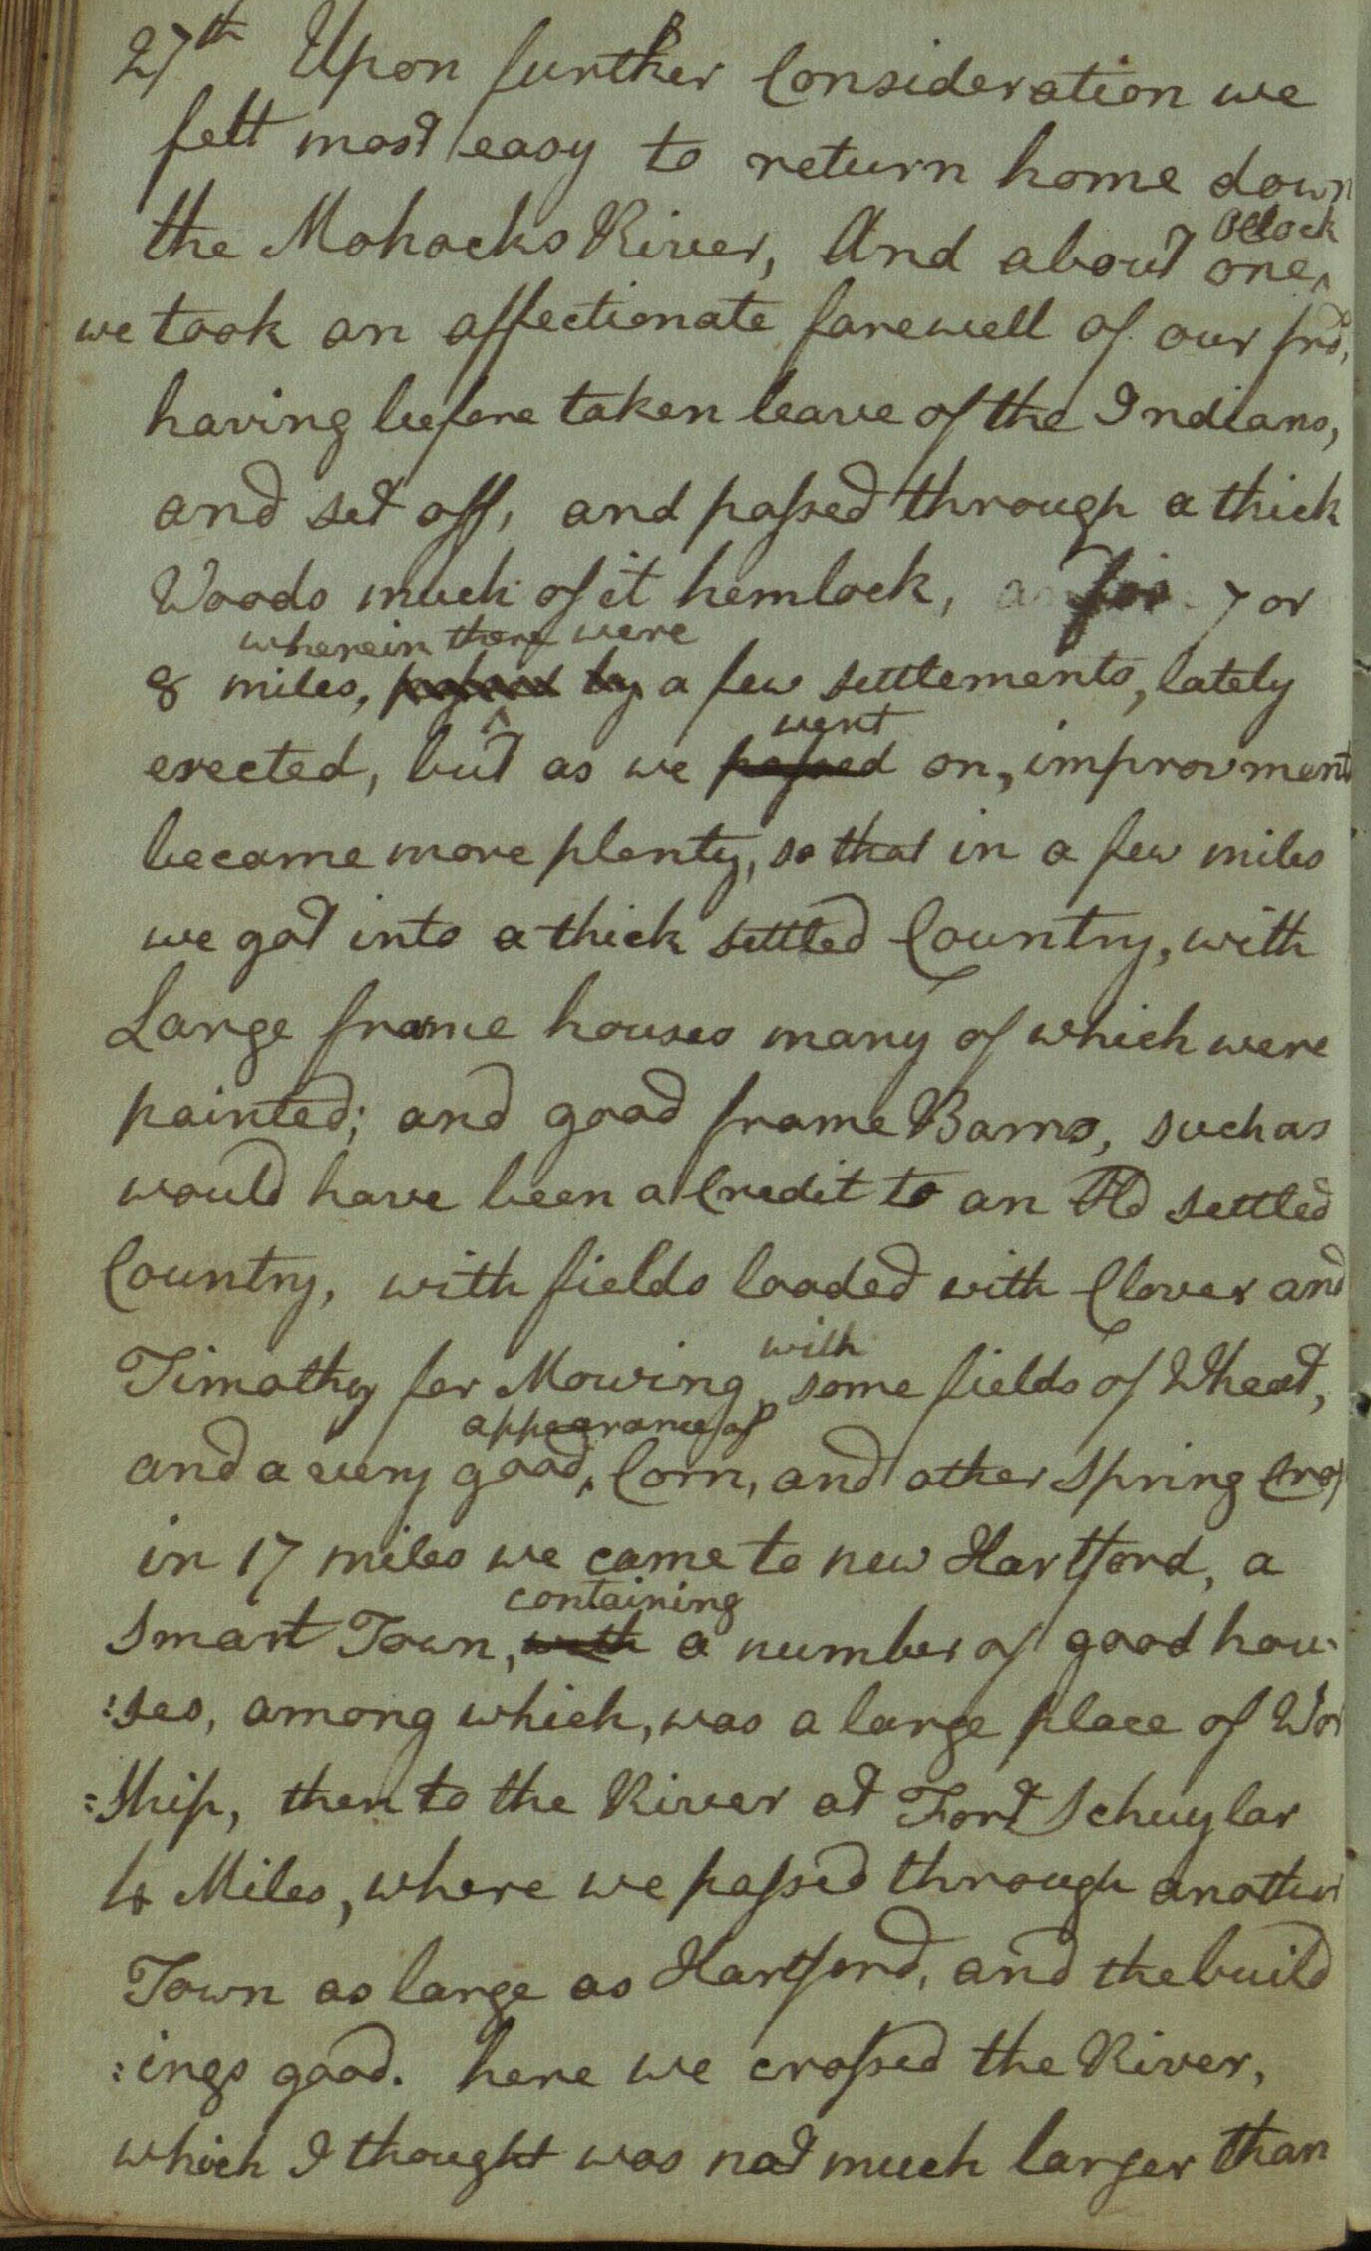 27th Upon further Consideration we
felt most easy to return home down
the Mohocks River, And about one oClock
we took an affectionate farewell of our frds,
having before taken leave of the Indians,
and set off, and passed through a thick
Woods much of it hemlock, for 7 or
wherein there were
8 miles, passed by a few settlements, lately
went
erected, but as we passed on, improvment
became more plenty, so that in a few miles
we got into a thick settled Country, with
Large frame houses many of which were
painted; and good frame Barns, such as
would have been a Credit to an Old settled
Country, with fields loaded with Clover and
with
Timothy for Mowing, some fields of Wheat,
appearance of
and a very good, Corn, and other spring Crop
in 17 miles we came to new Hartford, a
containing
Smart Town, with a number of good hou-
:ses, among which, was a large place of Wor
=Ship, then to the River at Fort Schuylar
4 Miles, where we passed through another
Town as large as Hartford, and the build
:ings good. here we crossed the River,
which I thought was not much larger than